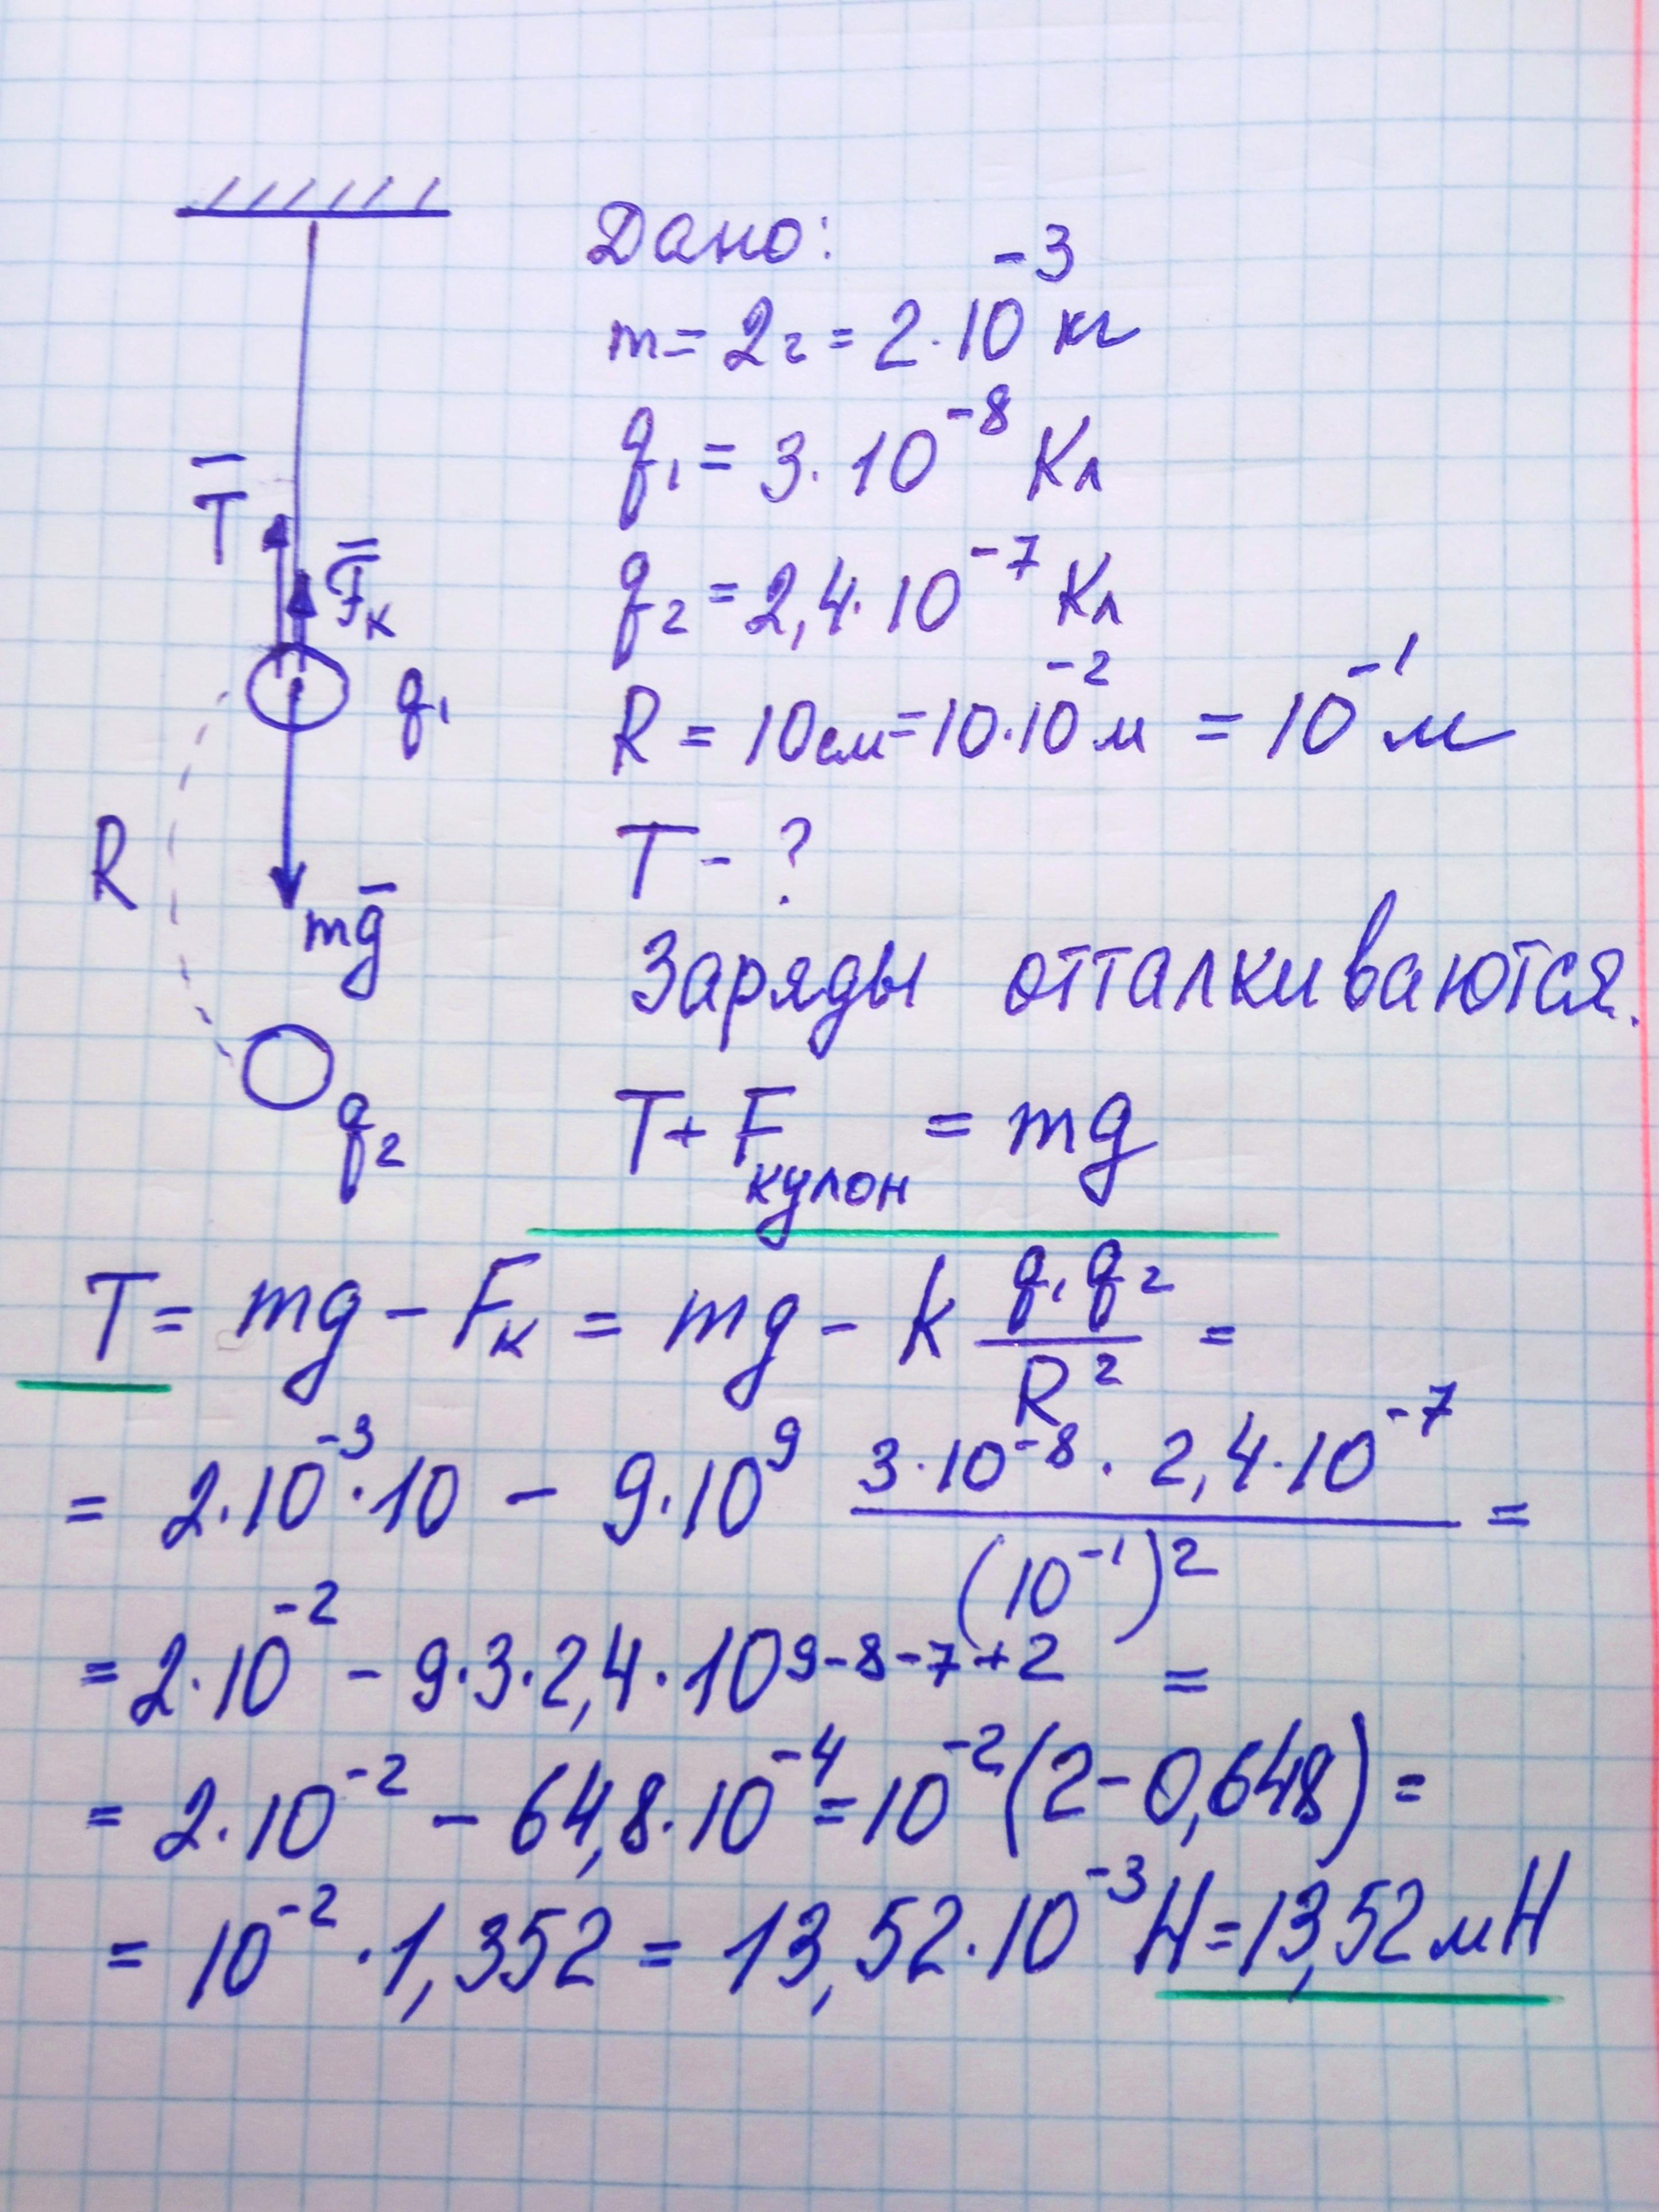 Дано:
m = 2г = 2·10⁻³ кг
q₁ = 3·10⁻⁸ Кл
q₂ = 2,4·10⁻⁷ Кл
R = 10см = 10·10⁻² м = 10⁻¹ м
T - ?
T̅
F̅к
q₁
R
mg̅
q₂
Заряды отталкиваются.
T + Fкулон = mg
T = mg - Fк = mg - k q₁q₂/R² =
= 2·10⁻³·10 - 9·10⁹ (3·10⁻⁸ · 2,4·10⁻⁷)/(10⁻¹)² =
= 2·10⁻² - 9·3·2,4·10⁹⁻⁸⁻⁷⁺² =
= 2·10⁻² - 64,8·10⁻⁴ = 10⁻²(2-0,648) =
= 10⁻²·1,352 = 13,52·10⁻³ Н = 13,52 мН